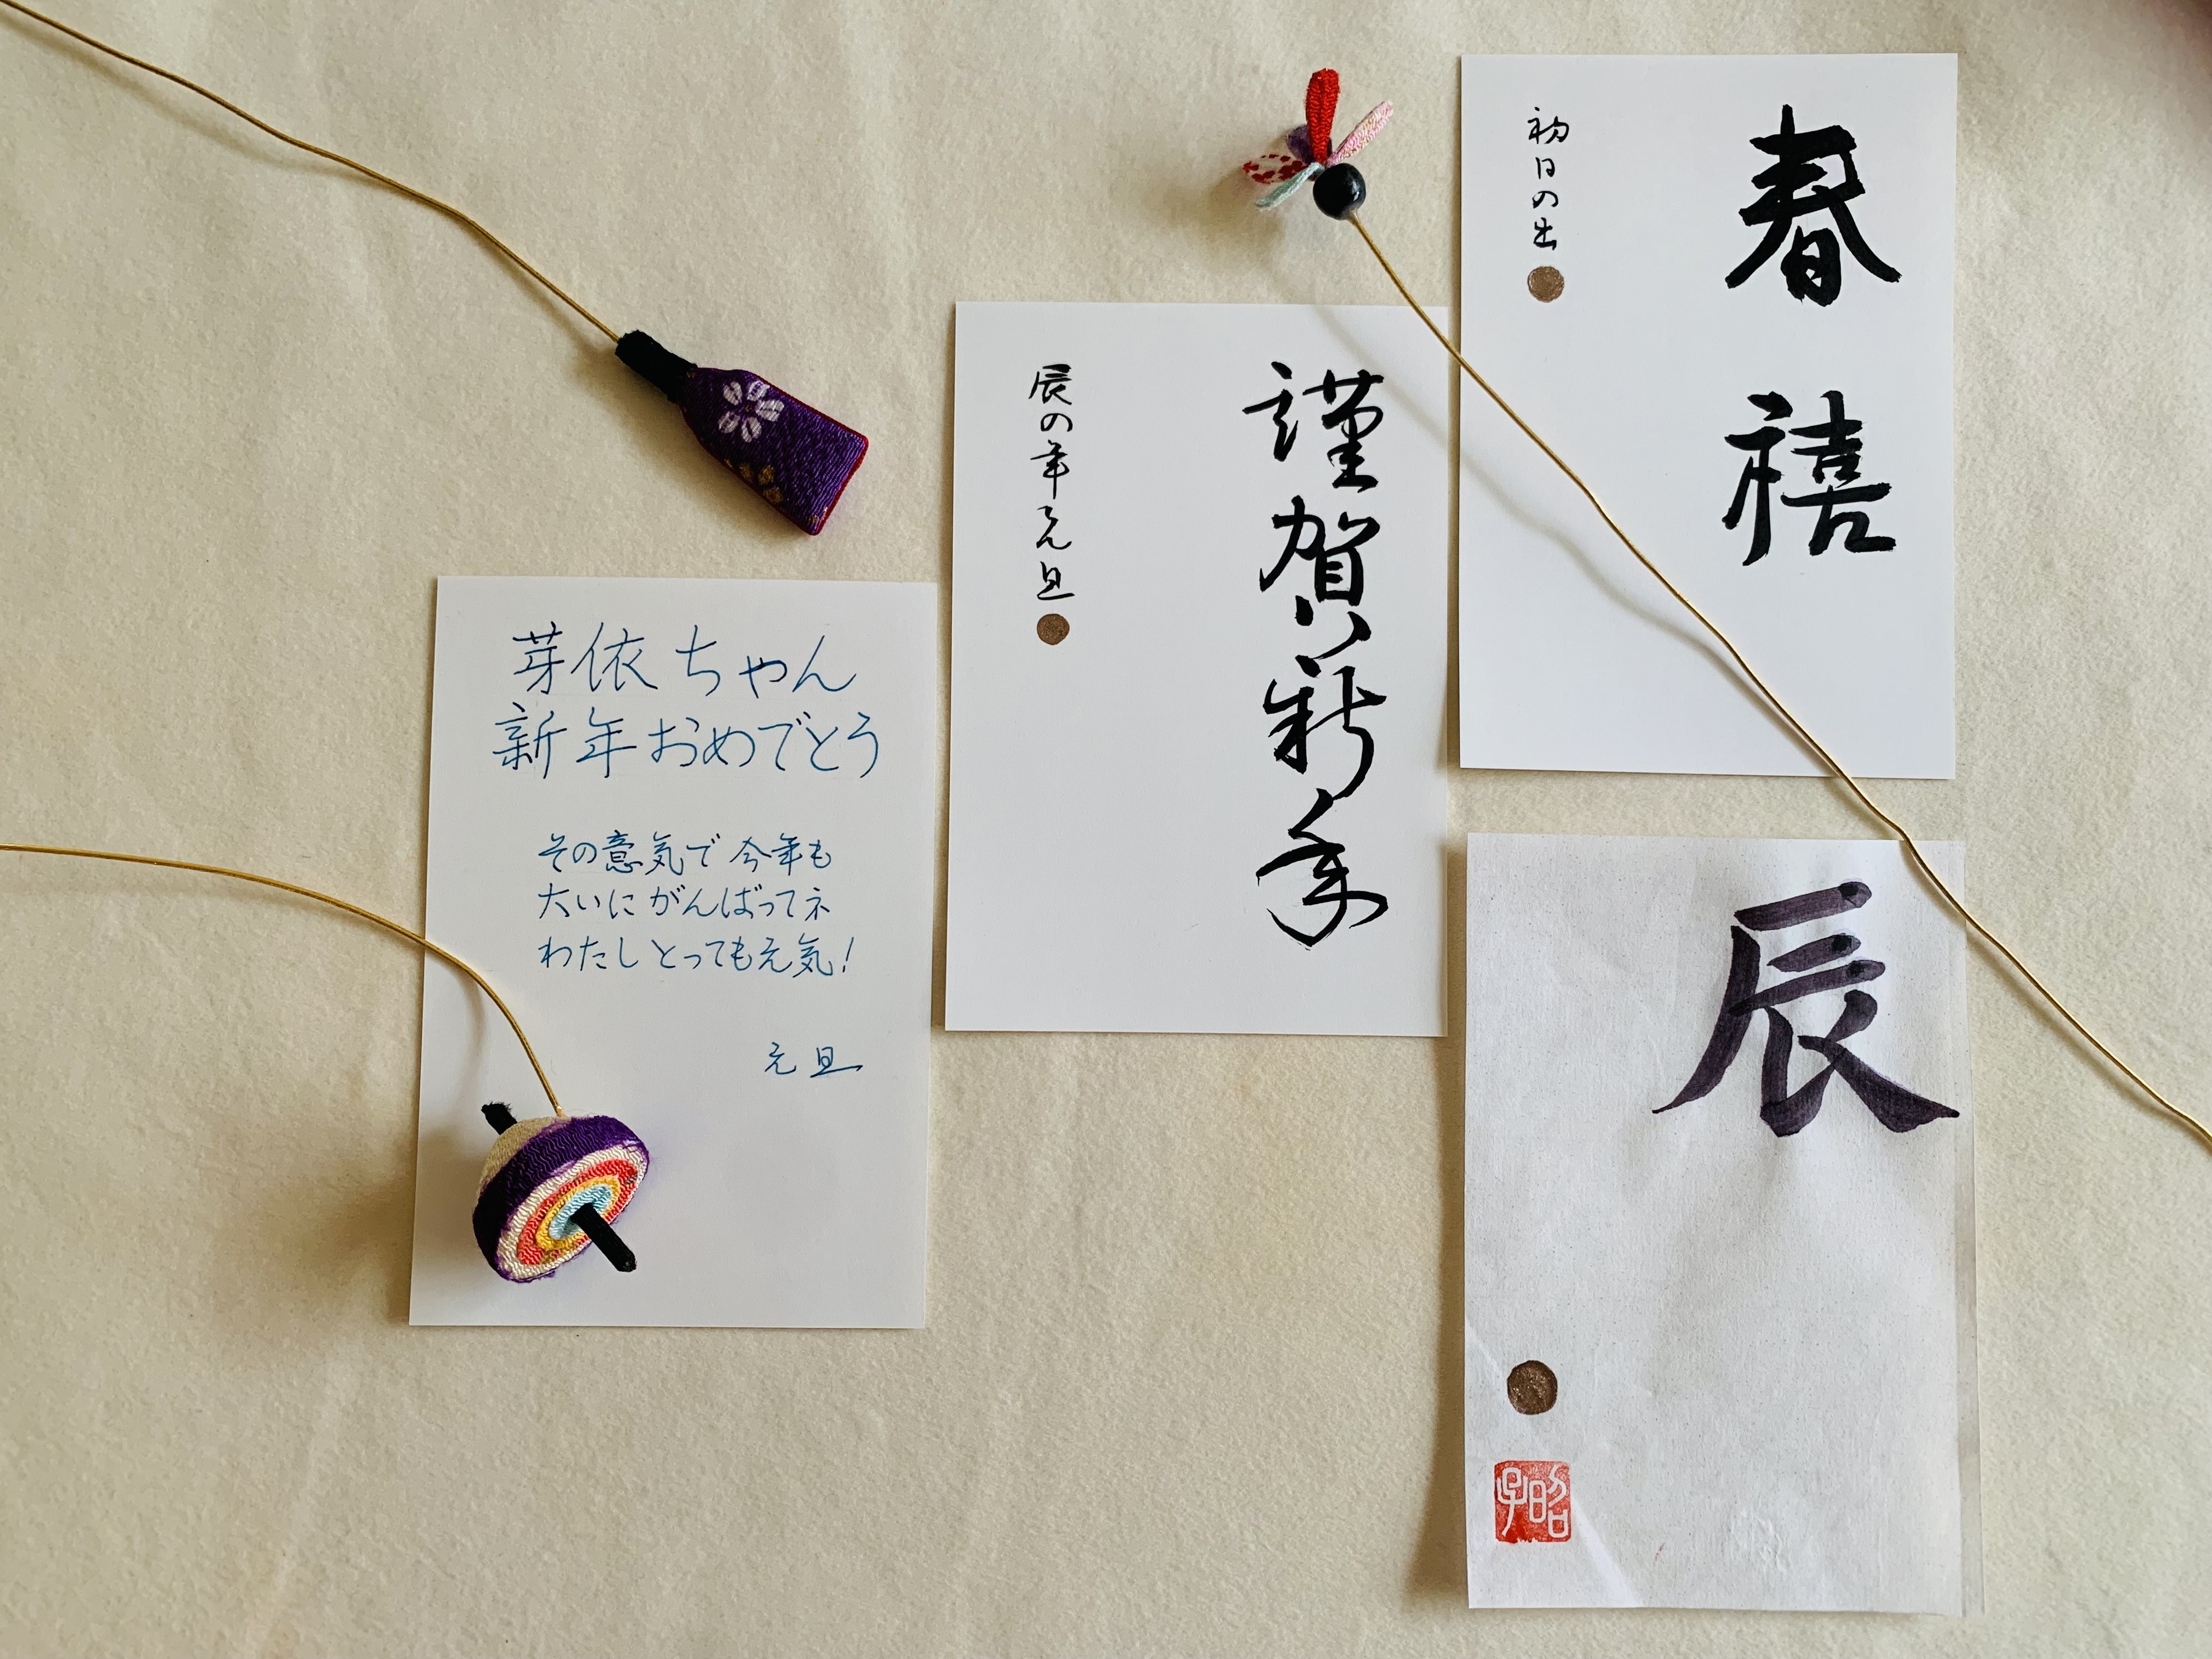 春禧
初日の出
謹賀新年
辰の年元旦
芽依ちゃん
新年おめでとう
その意気で今年も
大いにがんばってネ
わたしとっても元気!
元旦
辰